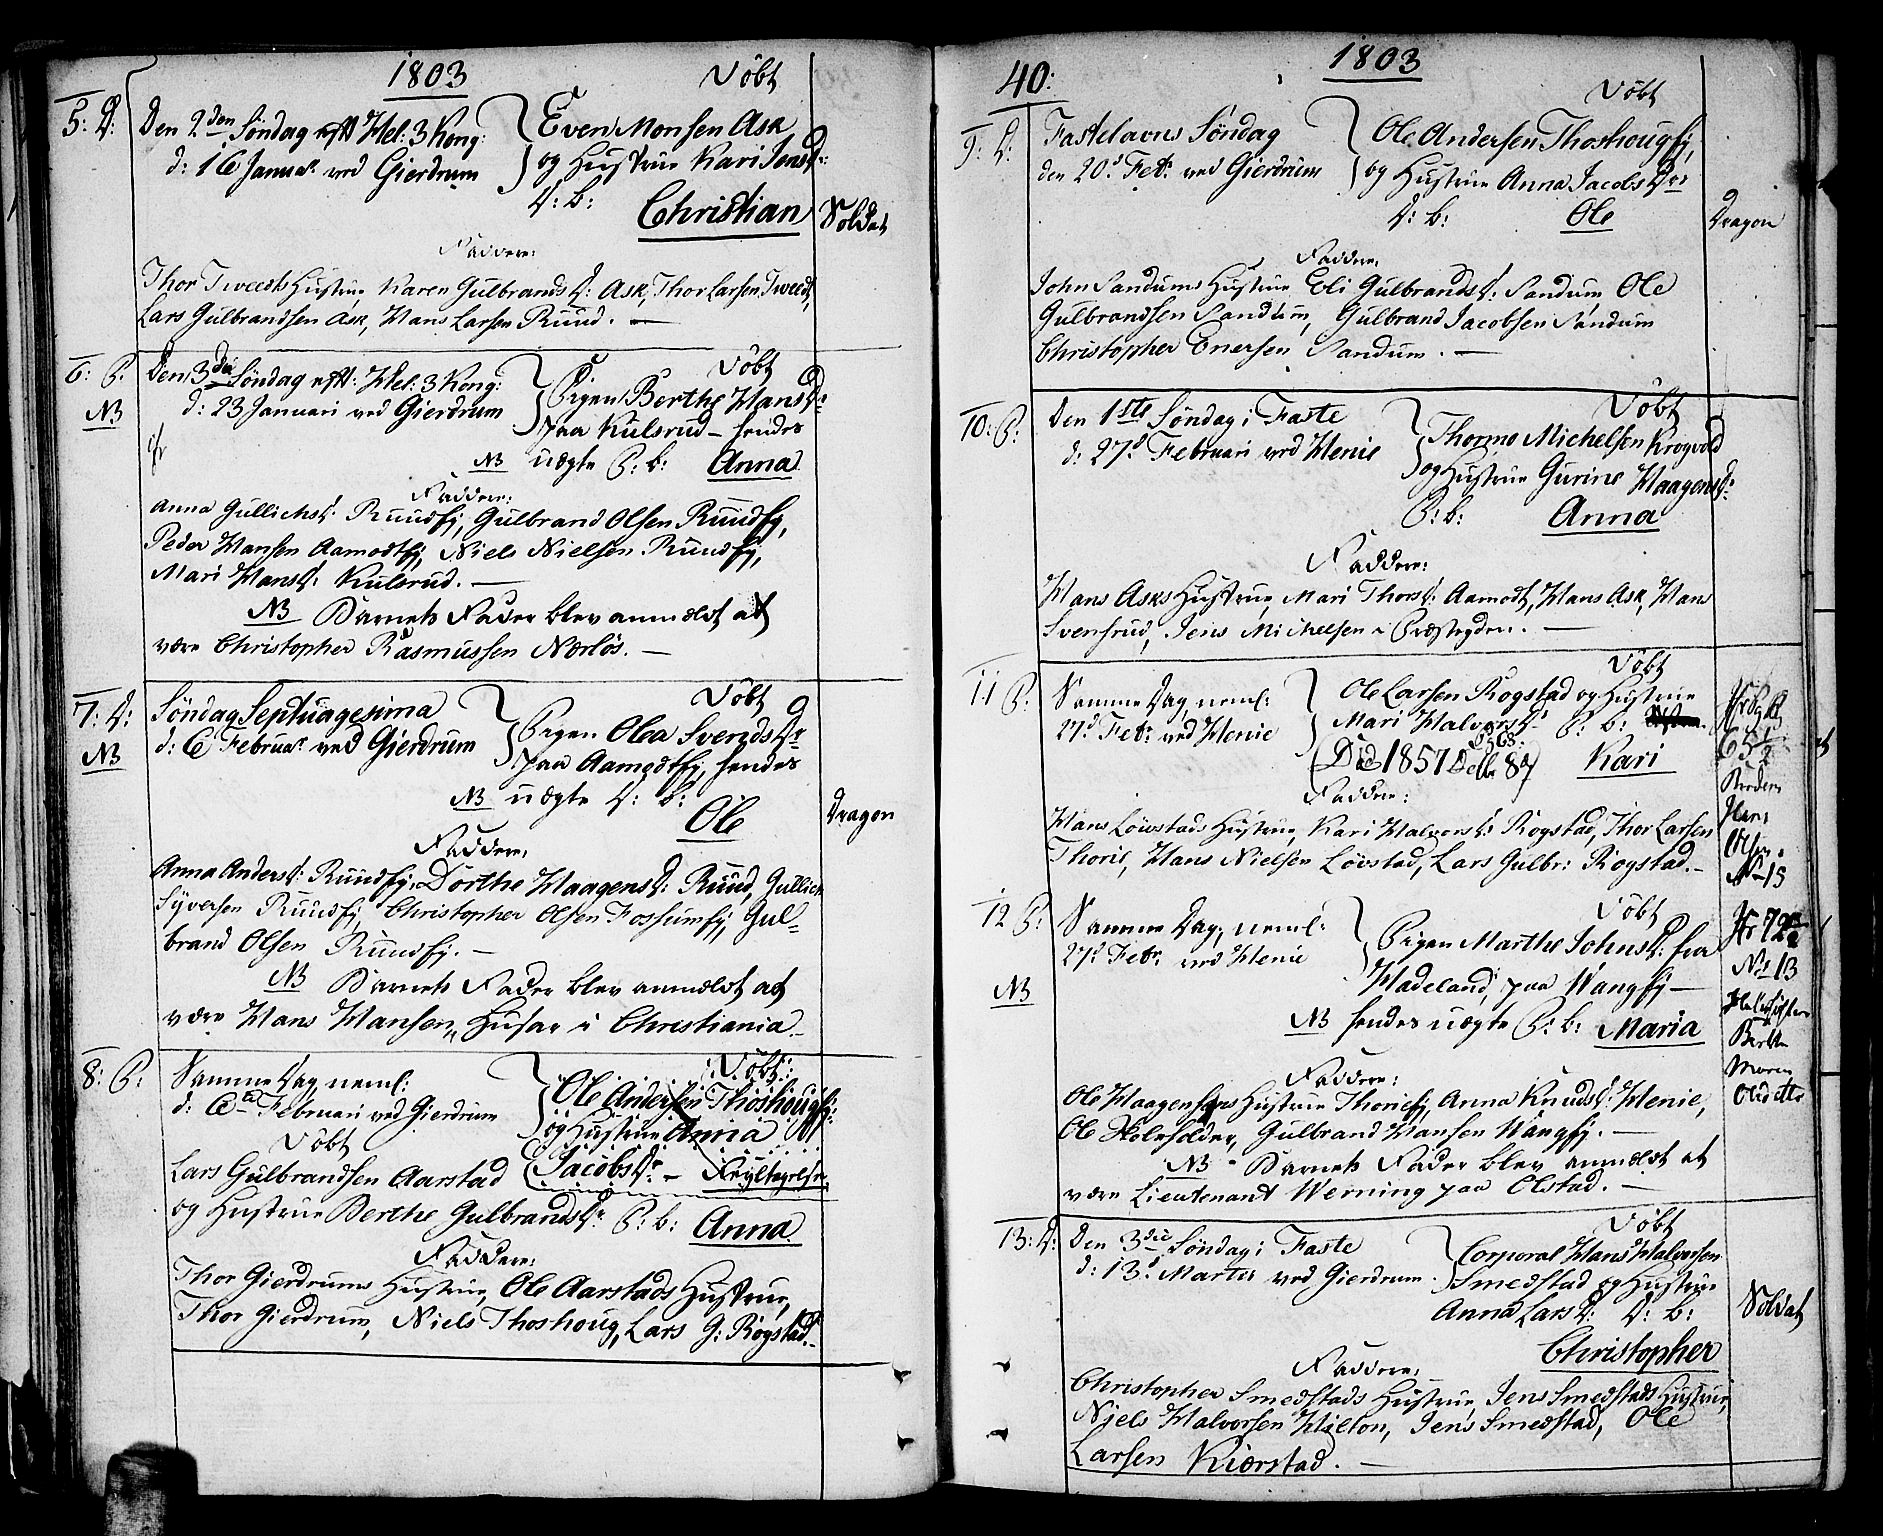 1803
Döbt
5: D: Den 2den Söndag eftr Hel: 3 Kong:
d: 16 Januar. ved Gierdrum
Even Monsen Ask
og Hustrue Kari Jens D:
D: b:
Christian
Soldat
Faddere:
Thor Tweets Hustrue, Karen Gulbrands D: Ask, Thor Larsen Tweedt,
Lars Gulbrandsen Ask, Hans Larsen Ruud. —
6: P:
NB
Den 3die Söndag eftr: Hel: 3 Kong:
d: 23 Januari ved Gierdrum
Döbt
Pigen Berthe Hans Dr
paa Kulsrud — hendes
NB uægte P: b: Anna
Faddere:
Anna Gullichs D: Ruudfj, Gulbrand Olsen Ruudfj,
Peder Hansen Aamodtfj, Niels Nielsen Ruudfj,
Mari Hans D: Kulsrud. —
NB Barnets Fader blev anmeldt at
være Christopher Rasmussen Nærløs. —
7: D:
NB
Söndag Septuagesima
d: 6 Februar. ved Gierdrum
Döbt
Pigen Olea Svends Dr
paa Aamodtfj, hendes
NB uægte D: b:
Ole
Dragon
Faddere:
Anna Anders D: Ruudfj, Dorthe Haagens D: Ruud, Gullich
Syversen Ruudfj, Christopher Olsen Fossumfj, Gul-
brand Olsen Ruudfj. —
NB Barnets Fader blev anmeldt at
være Hans Hansen, Husar i Christiania.
8: P: Samme Dag, neml:
d: 6 Februari ved Gierdrum
Döbt:
Ole Andersen Thoshougfj:
og Hustrue Anna
Jacobs Dr —
Döbt
Lars Gulbrandsen Aarstad
og Hustrue Berthe Gulbrands Dr P: b: Anna
Faddere:
Thor Gierdrums Hustrue, Ole Aarstads Hustrue,
Thor Gierdrum, Niels Thoshoug, Lars G: Rogstad.—
40:
1803
Döbt
9: D: Fastelavns Söndag
den 20d Febr. ved Gierdrum
Ole Andersen Thoshougfj,
og Hustrue Anna Jacobs Dr
D: b: Ole
Dragon
Faddere:
John Sandums Hustrue Eli Gulbrands D: Sandum, Ole
Gulbrandsen Sandum, Gulbrand Jacobsen Sandum
Christopher Enersen Sandum. —
10: P: Den 1ste Söndag i Faste
d: 27d Februari ved Henie
Döbt
Thormo Michelsen Krogvold
og Hustrue Gurine Haagens D:
P: b: Anna
Faddere:
Hans Asks Hustrue, Mari Thors D: Aamodt, Hans Ask, Hans
Svensrud, Jens Michelsen i Præstegden. —
11 P: Samme Dag, neml:
27d Febr. ved Henie
Döbt
Ole Larsen Rogstad og Hustrue
Mari Halvors D: P: b:
(Död 1857 Decbr 8d)
Kari
65 1/2
Olsen
No 15
Faddere:
Hans Løvstads Hustrue, Kari Halvors D: Rogstad, Thor Larsen
Thorie, Hans Nielsen Løvstad, Lars Gulbr: Rogstad.—
12 P:
NB
Samme Dag, neml:
27d Febr. ved Henie
Döbt
Pigen Marthe Johns D: fra
Hadeland, paa Wangfj —
NB hendes uægte P: b: Maria
No 13
Halvsöster
Berthe
Maren
Faddere:
Ole Haagensens Hustrue Thoriefj, Anna Knuds D: Henie,
Ole Holmsolder, Gulbrand Hansen Wangfj. —
NB Barnets Fader blev anmeldt at
være Lieutenant Werning paa Olstad. —
13: D: Den 3die Söndag i Faste
d: 13d Martii ved Gierdrum.
Döbt
Corporal Hans Halvorsen
Smedstad og Hustrue
Anna Lars D: D: b:
Christopher
Soldat
Faddere:
Christopher Smedstads Hustrue, Jens Smedstads Hustrue,
Niels Halvorsen Hielon, Jens Smedstad, Ole
Larsen Kiærstad. —